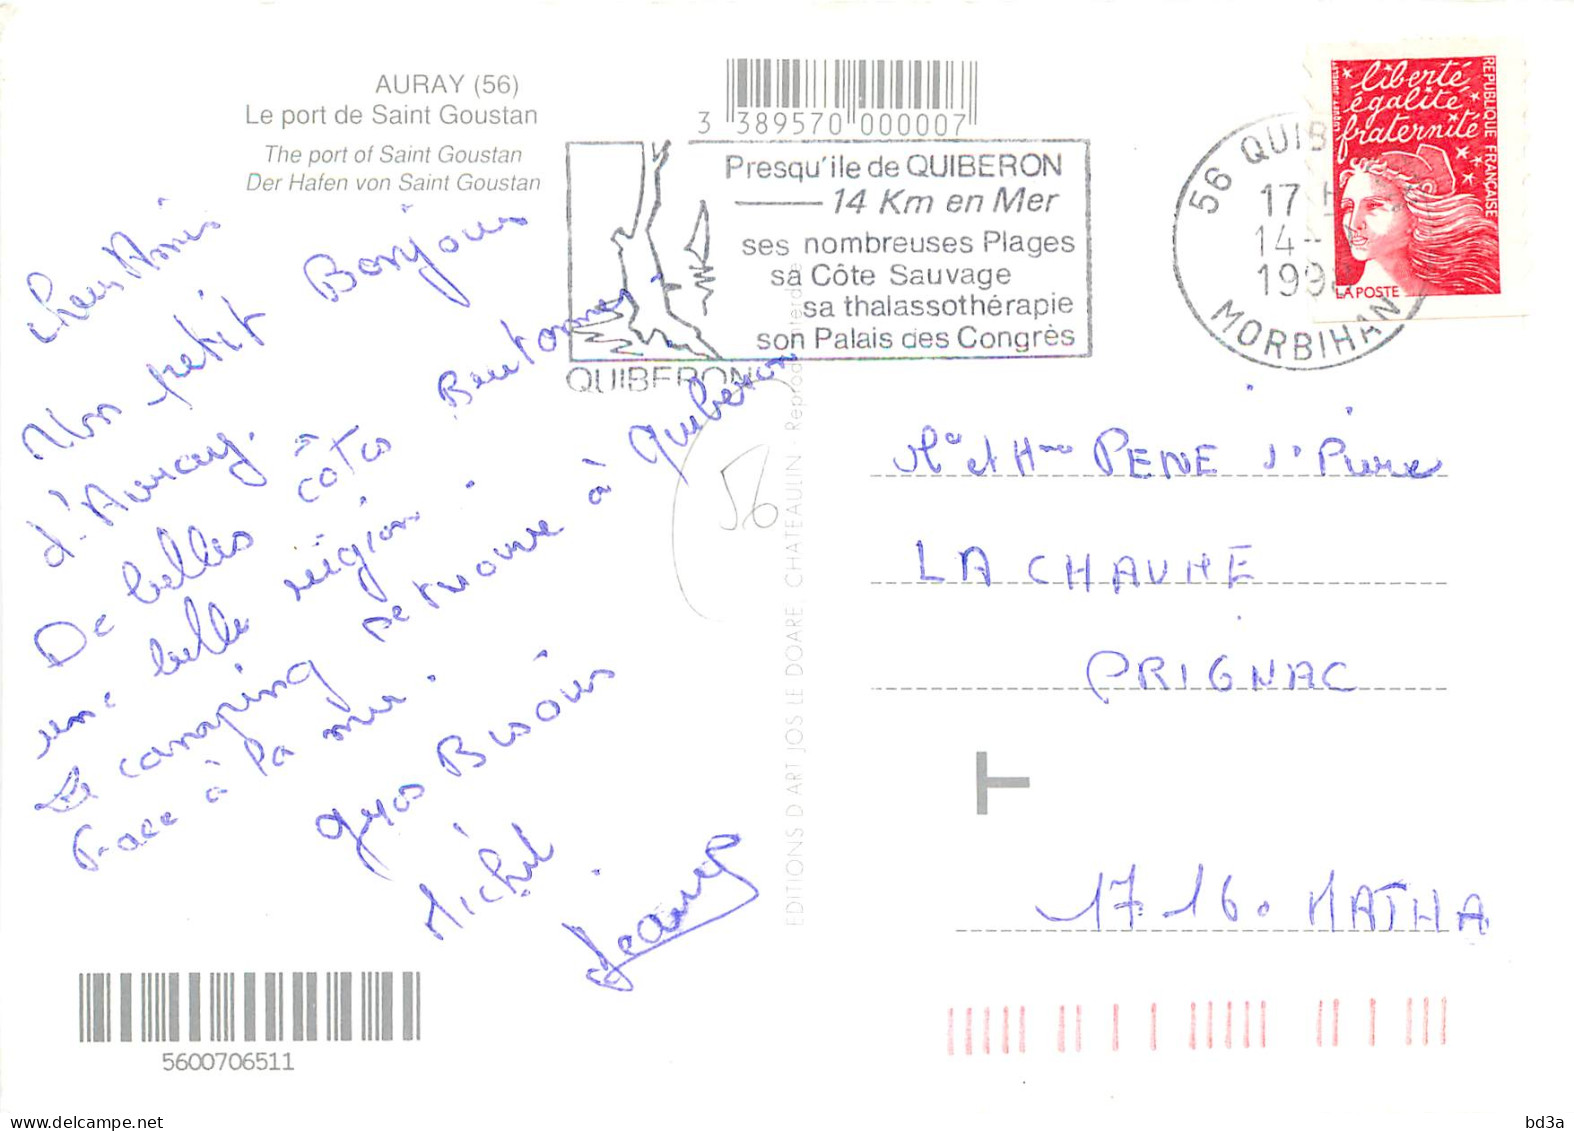 AURAY (56)
Le port de Saint Goustan
The port of Saint Goustan
Der Hafen von Saint Goustan
3 389570 000007
Presqu'ile de QUIBERON
14 Km en Mer
ses nombreuses Plages
sa Côte Sauvage
sa thalassothérapie
son Palais des Congrès
QUIBERON
56 QUIB
17 H
14-
199
MORBIHAN
liberté
égalité
fraternité
REPUBLIQUE FRANÇAISE
LA POSTE
Chers Amis
Mon petit Bonjour
d'Auray.
De belles côtes Bretonnes
une belle région.
Le camping se trouve à Quiberon
Face à la mer.
Gros Bisous
Michel
56
EDITIONS D'ART JOS LE DOARE, CHATEAULIN - Reproduction interdite
Mr et Mme PENE J. Pierre
LA CHAUME
PRIGNAC
T
17.160 MATHA
5600706511